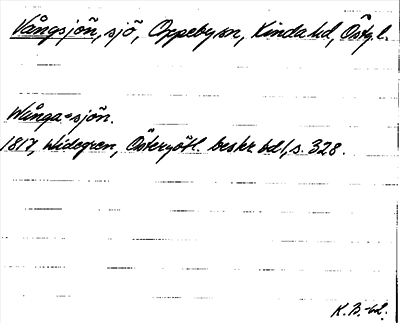 Vångsjön, sjö, Oppeby sn, Kinda hd, Östg.l.
Wånga=sjön.
1817, Widegren, Östergötl. beskr. bd 1, s. 328.
K.B.-bl.